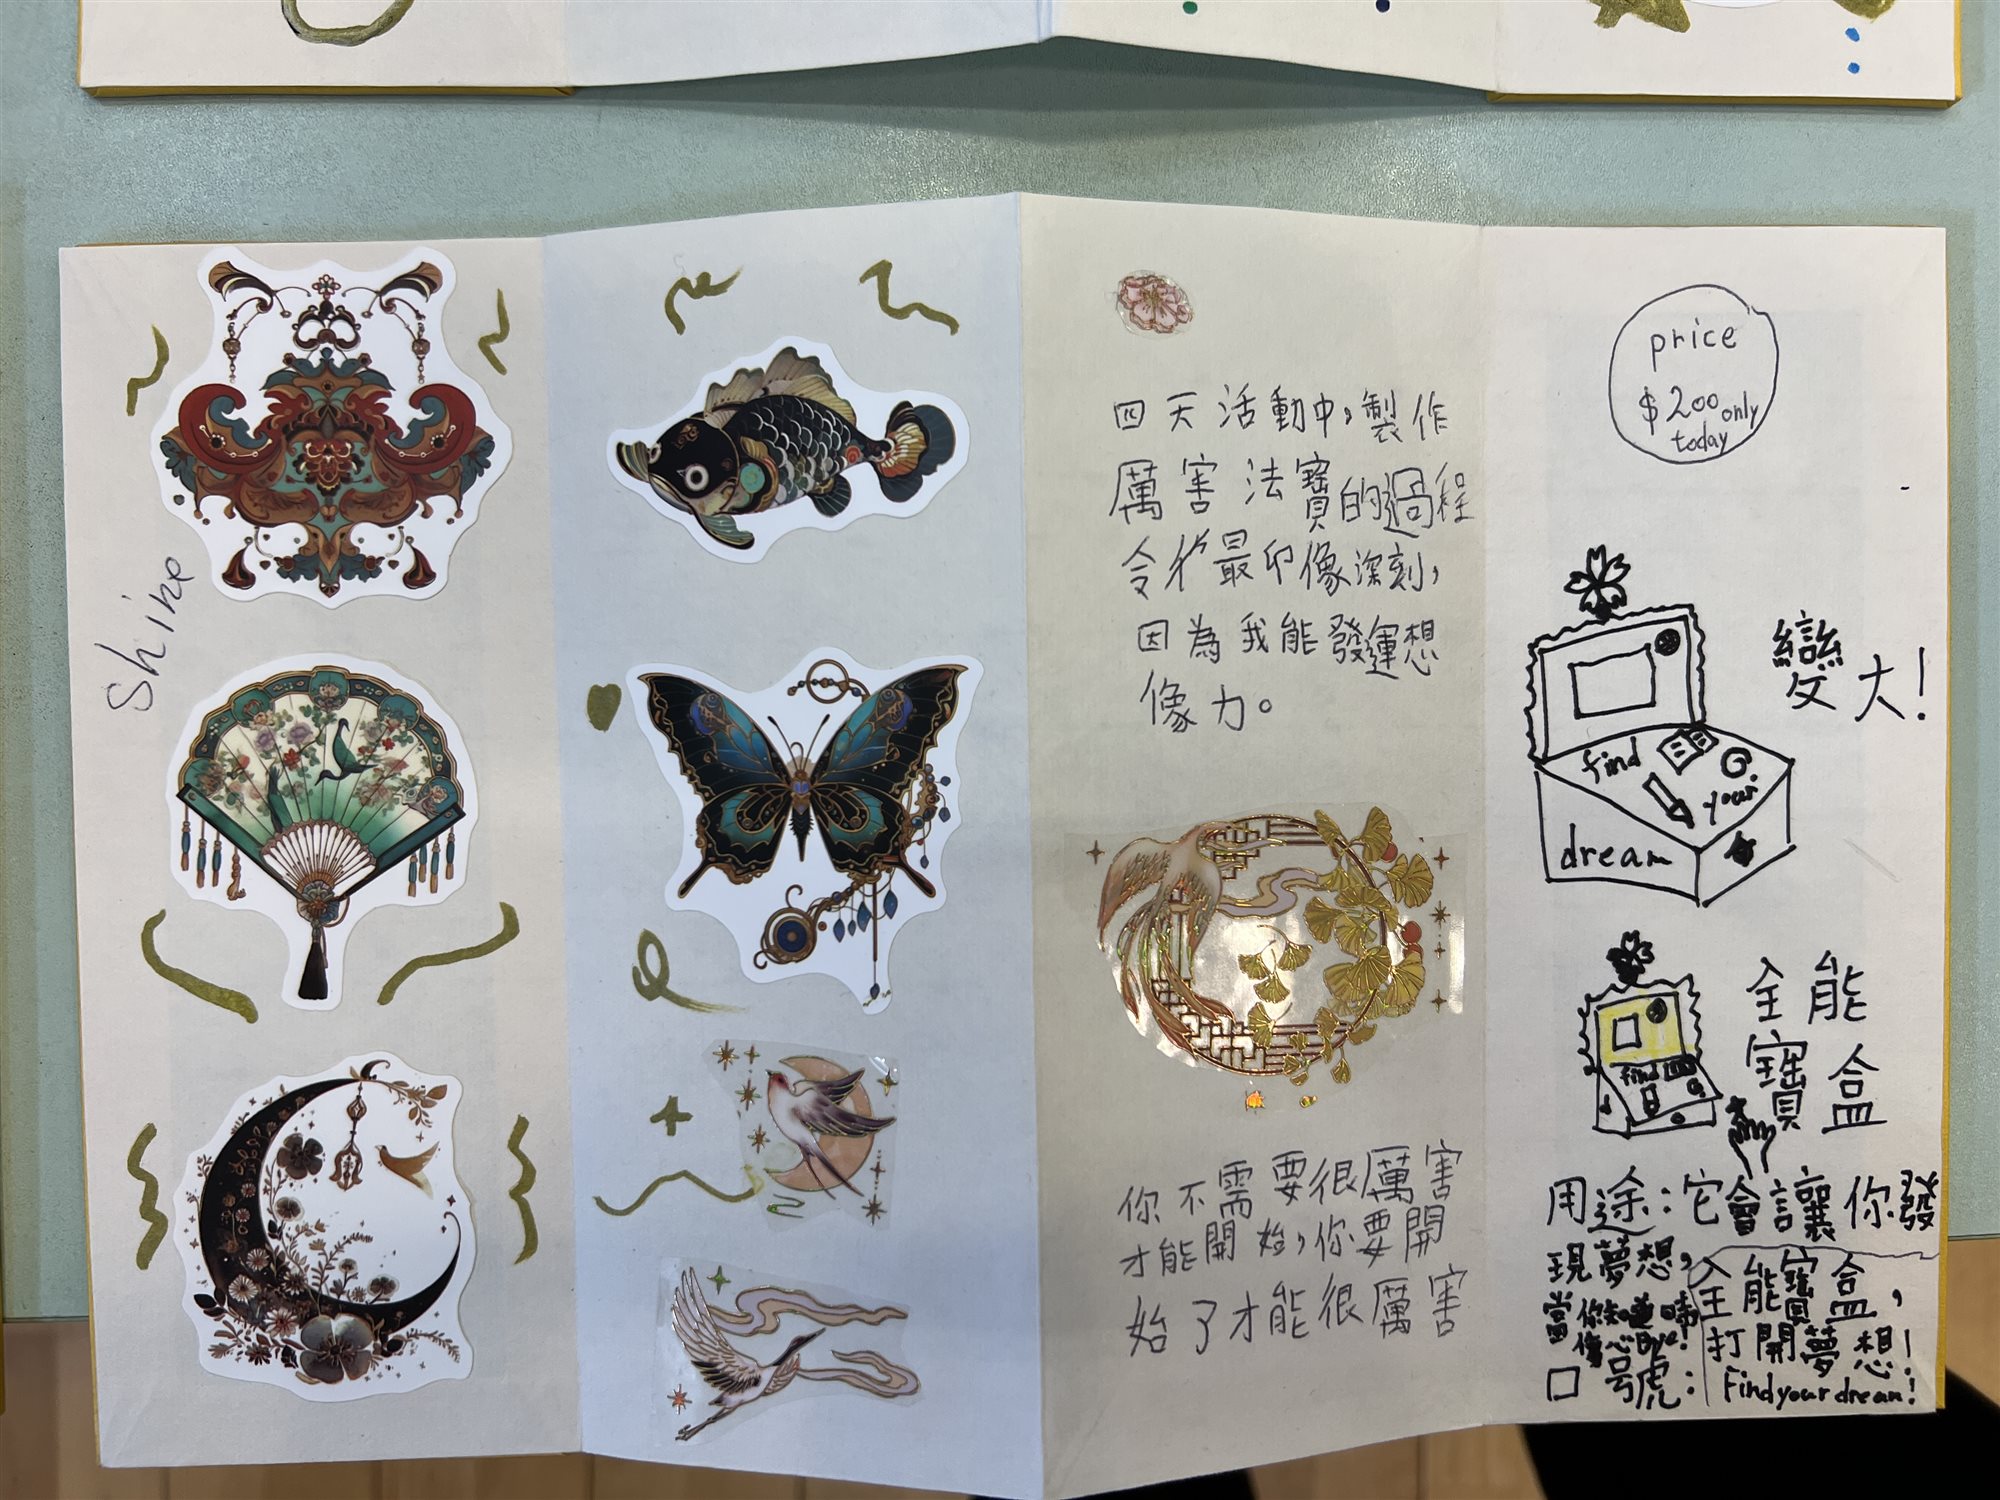 Shine
四天活動中，製作
厲害法寶的過程
令我最印像深刻，
因為我能發運想
像力。
你不需要很厲害
才能開始，你要開
始了才能很厲害
price
$200 only
today
變大！
find
your
dream
全能
寶盒
find
用途：它會讓你發
現夢想，
口號：
全能寶盒，
打開夢想！
Find your dream!